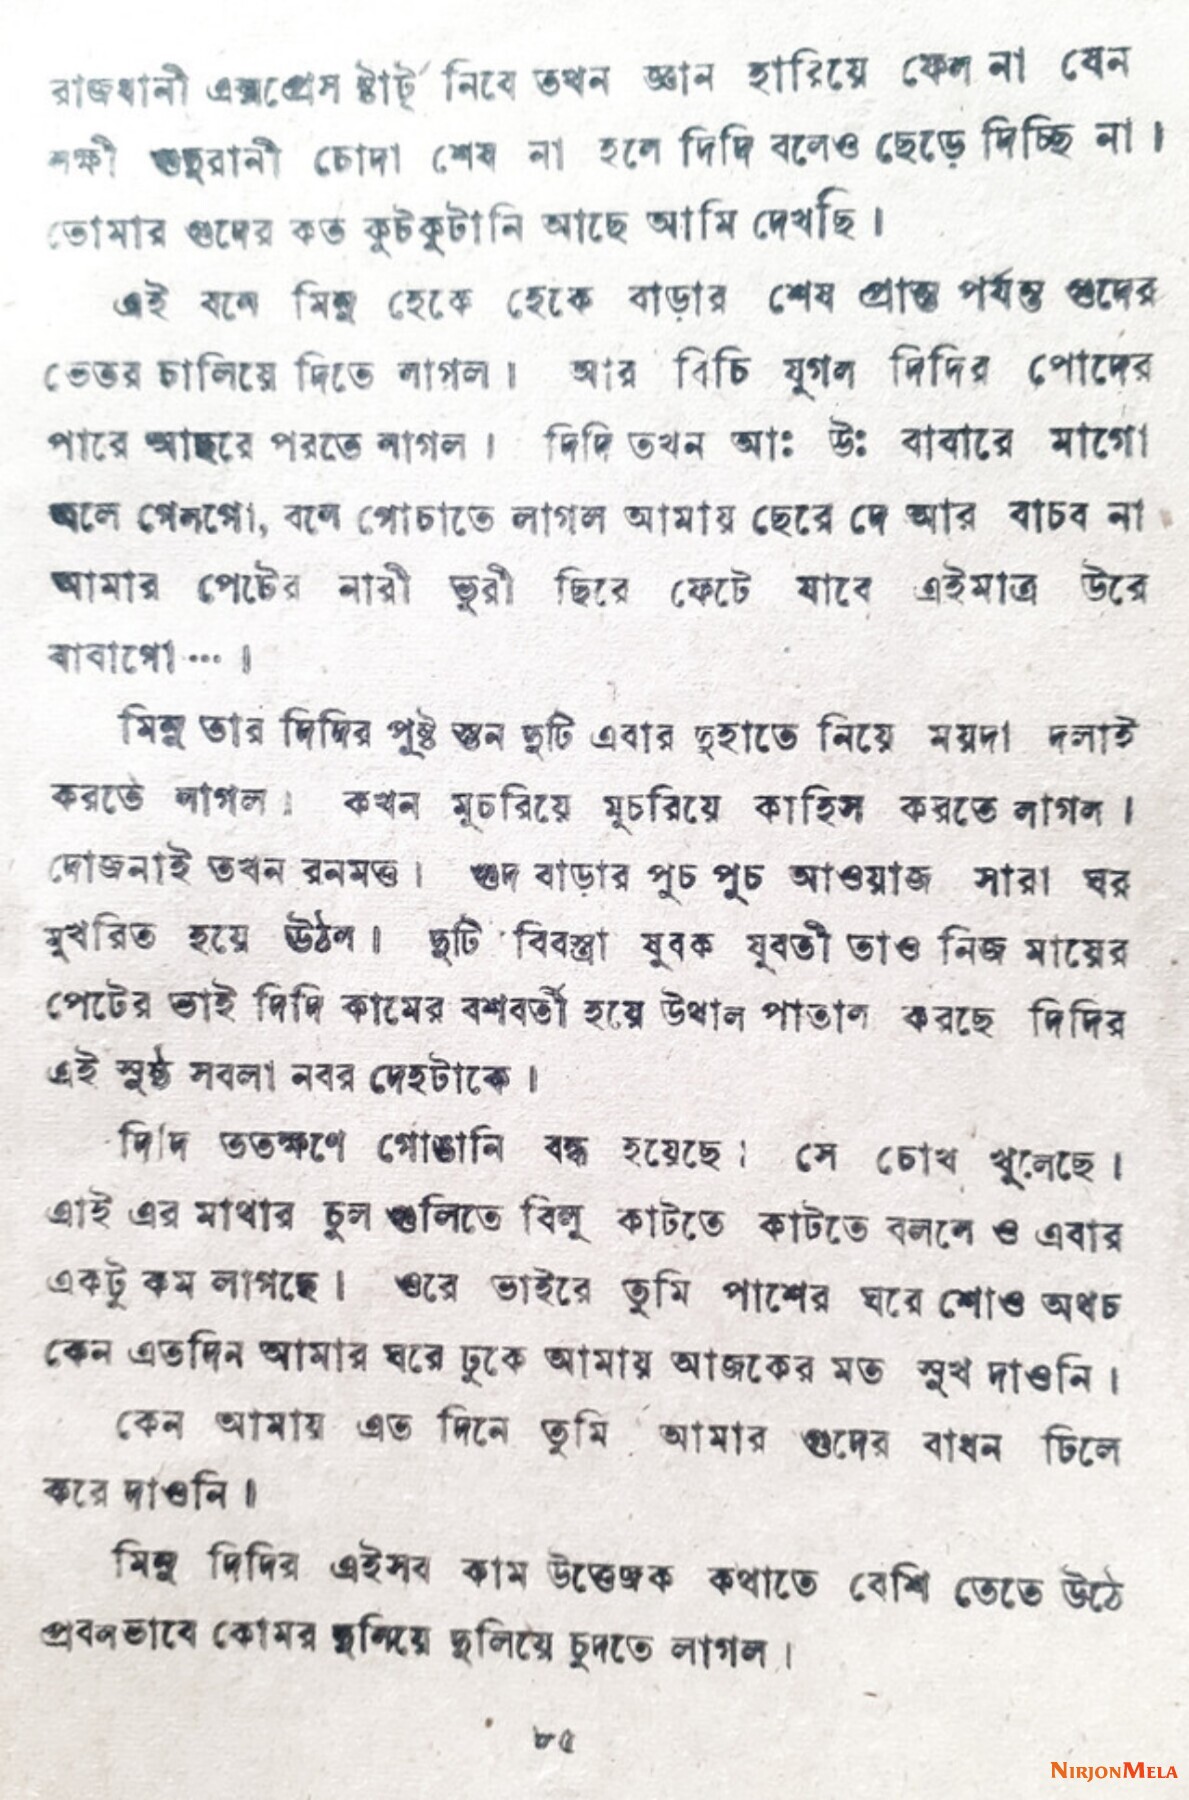 রাজধানী এক্সপ্রেস ষ্টার্ট নিবে তখন জ্ঞান হারিয়ে ফেল না যেন
লক্ষী গুদুরানী চোদা শেষ না হলে দিদি বলেও ছেড়ে দিচ্ছি না।
তোমার গুদের কত কুটকুটানি আছে আমি দেখছি।
এই বলে মিন্নু হেকে হেকে বাড়ার শেষ প্রান্ত পর্যন্ত গুদের
ভেতর চালিয়ে দিতে লাগল। আর বিচি যুগল দিদির পোদের
পারে আছরে পরতে লাগল। দিদি তখন আঃ উঃ বাবারে মাগো
বলে গেলগো, বলে গোচাতে লাগল আমায় ছেরে দে আর বাচব না
আমার পেটের নারী ভুরী ছিরে ফেটে যাবে এইমাত্র উরে
বাবাগো ··· ।
মিন্নু তার দিদির পুষ্ট স্তন দুটি এবার দুহাতে নিয়ে ময়দা দলাই
করতে লাগল। কখন মুচরিয়ে মুচরিয়ে কাহিস করতে লাগল।
দোজনাই তখন রনমত্ত। গুদ বাড়ার পুচ পুচ আওয়াজ সারা ঘর
মুখরিত হয়ে উঠল। দুটি বিবস্ত্রা যুবক যুবতী তাও নিজ মায়ের
পেটের ভাই দিদি কামের বশবর্তী হয়ে উথাল পাতাল করছে দিদির
এই সুষ্ঠ সবলা নবর দেহটাকে।
দিদি ততক্ষণে গোঙানি বন্ধ হয়েছে। সে চোখ খুলেছে।
এাই এর মাথার চুল গুলিতে বিলু কাটতে কাটতে বললে ও এবার
একটু কম লাগছে। ওরে ভাইরে তুমি পাশের ঘরে শোও অথচ
কেন এতদিন আমার ঘরে ঢুকে আমায় আজকের মত সুখ দাওনি।
কেন আমায় এত দিনে তুমি আমার গুদের বাধন ঢিলে
করে দাওনি।
মিন্নু দিদির এইসব কাম উত্তেজক কথাতে বেশি তেতে উঠে
প্রবলভাবে কোমর দুলিয়ে দুলিয়ে চুদতে লাগল।
৮৫
NIRJONMELA